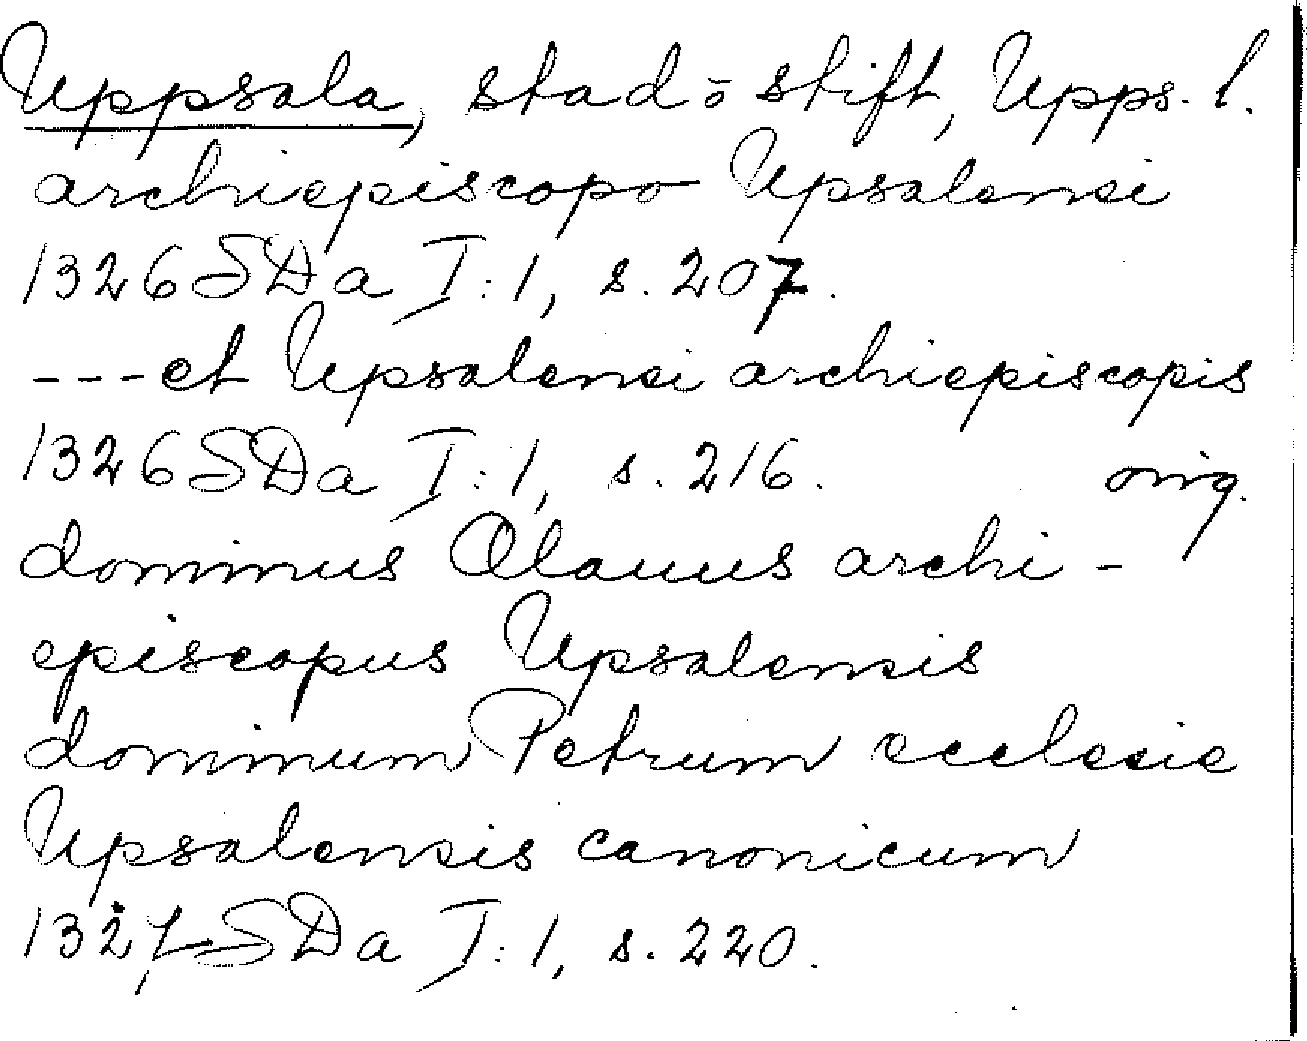 Uppsala, stad o stift, Upps. l.
archiepiscopo Upsalensi
1326 SDa I:1, s. 207.
---et Upsalensi archiepiscopis
1326 SDa I:1, s. 216. orig.
dominus Olauus archi-
episcopus Upsalensis
dominum Petrum ecclesie
Upsalensis canonicum
1327 SDa I:1, s. 220.